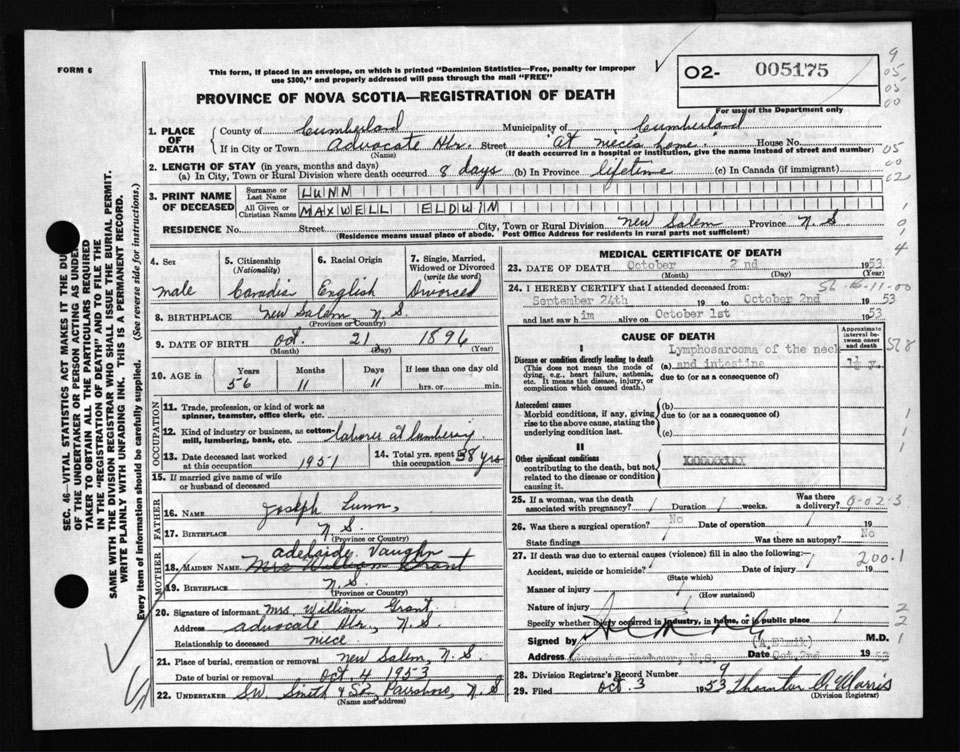 FORM 6
This form, if placed in an envelope, on which is printed "Dominion Statistics—Free, penalty for improper
use $300," and properly addressed will pass through the mail "FREE"
O2- 005175
For use of the Department only
PROVINCE OF NOVA SCOTIA—REGISTRATION OF DEATH
9
05
05
00
1. PLACE OF DEATH
County of Cumberland Municipality of Cumberland
If in City or Town Advocate Hbr. Street "at niece's home." House No.
(Name) (If death occurred in a hospital or institution, give the name instead of street and number)
05
00
02
2. LENGTH OF STAY (in years, months and days)
(a) In City, Town or Rural Division where death occurred 8 days (b) In Province lifetime (c) In Canada (if immigrant)
3. PRINT NAME OF DECEASED
Surname or Last Name LUNN
All Given or Christian Names MAXWELL ELDWIN
RESIDENCE No. Street City, Town or Rural Division New Salem Province N.S
(Residence means usual place of abode. Post Office Address for residents in rural parts not sufficient)
SEC. 46—VITAL STATISTICS ACT MAKES IT THE DU
OF THE UNDERTAKER OR PERSON ACTING AS UNDER
TAKER TO OBTAIN ALL THE PARTICULARS REQUIRED
IN THE "REGISTRATION OF DEATH" AND TO FILE THE
SAME WITH THE DIVISION REGISTRAR WHO SHALL ISSUE THE BURIAL PERMIT.
WRITE PLAINLY WITH UNFADING INK. THIS IS A PERMANENT RECORD.
Every item of information should be carefully supplied. (See reverse side for instructions.)
4. Sex
male
5. Citizenship
(Nationality)
Canadia
6. Racial Origin
English
7. Single, Married,
Widowed or Divorced
(write the word)
Divorced
8. BIRTHPLACE New Salem, N.S.
(Province or Country)
9. DATE OF BIRTH Oct. 21 1896
(Month) (Day) (Year)
10. AGE in
Years Months Days If less than one day old
56 11 11 hrs. or min.
OCCUPATION
11. Trade, profession, or kind of work as
spinner, teamster, office clerk, etc.
12. Kind of industry or business, as cotton-
mill, lumbering, bank, etc. labores at lumbering
13. Date deceased last worked
at this occupation 1951
14. Total yrs. spent in
this occupation 38 yrs
15. If married give name of wife
or husband of deceased
FATHER
16. NAME Joseph Lunn,
17. BIRTHPLACE N.S.
(Province or Country)
MOTHER
Adelaide Vaughn
18. MAIDEN NAME Mrs William Grant
19. BIRTHPLACE N.S.
(Province or Country)
20. Signature of informant Mrs. William Grant,
Address Advocate Hbr., N.S.
Relationship to deceased niece
21. Place of burial, cremation or removal New Salem, N.S.
Date of burial or removal Oct. 4 1953
22. UNDERTAKER Smith Parrsboro, N.S
(Name and address)
MEDICAL CERTIFICATE OF DEATH
23. DATE OF DEATH October 2nd 1953
(Month) (Day) (Year)
24. I HEREBY CERTIFY that I attended deceased from:
September 24th 19 to October 2nd 19 53
and last saw him alive on October 1st 1953
CAUSE OF DEATH
Approximate
interval between
onset
and death
I
Disease or condition directly leading to death
(This does not mean the mode of
dying, e.g., heart failure, asthenia,
etc. It means the disease, injury, or
complication which caused death.)
Lymphosarcoma of the neck
(a) and intestine 1½ y.
due to (or as a consequence of)
Antecedent causes
Morbid conditions, if any, giving
rise to the above cause, stating the
underlying condition last.
(b)
due to (or as a consequence of)
(c)
II
Other significant conditions
contributing to the death, but not
related to the disease or condition
causing it.
25. If a woman, was the death
associated with pregnancy? Duration weeks. Was there
a delivery? 0-02-3
26. Was there a surgical operation? No Date of operation 19
State findings Was there an autopsy? No
27. If death was due to external causes (violence) fill in also the following:— 200.1
Accident, suicide or homicide? Date of injury 19
(State which)
Manner of injury
(How sustained)
Nature of injury
Specify whether injury occurred in industry, in home, or in public place
Signed by M.D.
Address Advocate Harbour, N.S. Date Oct. 2nd 19 53
28. Division Registrar's Record Number 9
29. Filed Oct. 3 1953 Morris
(Division Registrar)